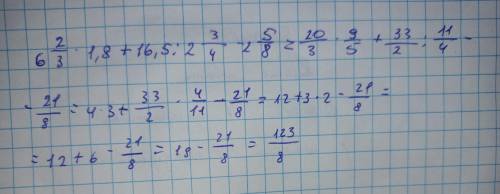 6 2/3 · 1,8 + 16,5 : 2 3/4 - 2 5/8 = 20/3 · 9/5 + 33/2 : 11/4 -
- 21/8 = 4·3 + 33/2 · 4/11 - 21/8 = 12 + 3·2 - 21/8 =
= 12 + 6 - 21/8 = 18 - 21/8 = 123/8